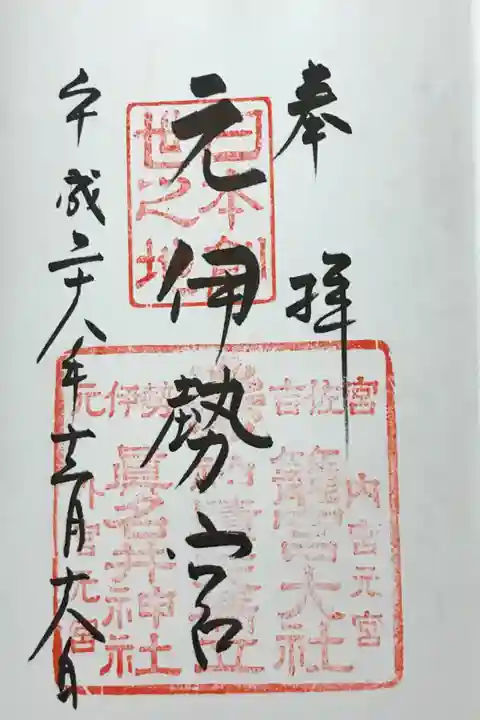 奉拝
元伊勢宮
平成二十八年十二月十八日
日本創世之地
元伊勢 吉佐宮
内宮元宮
籠宮大社
眞名井神社
外宮元宮